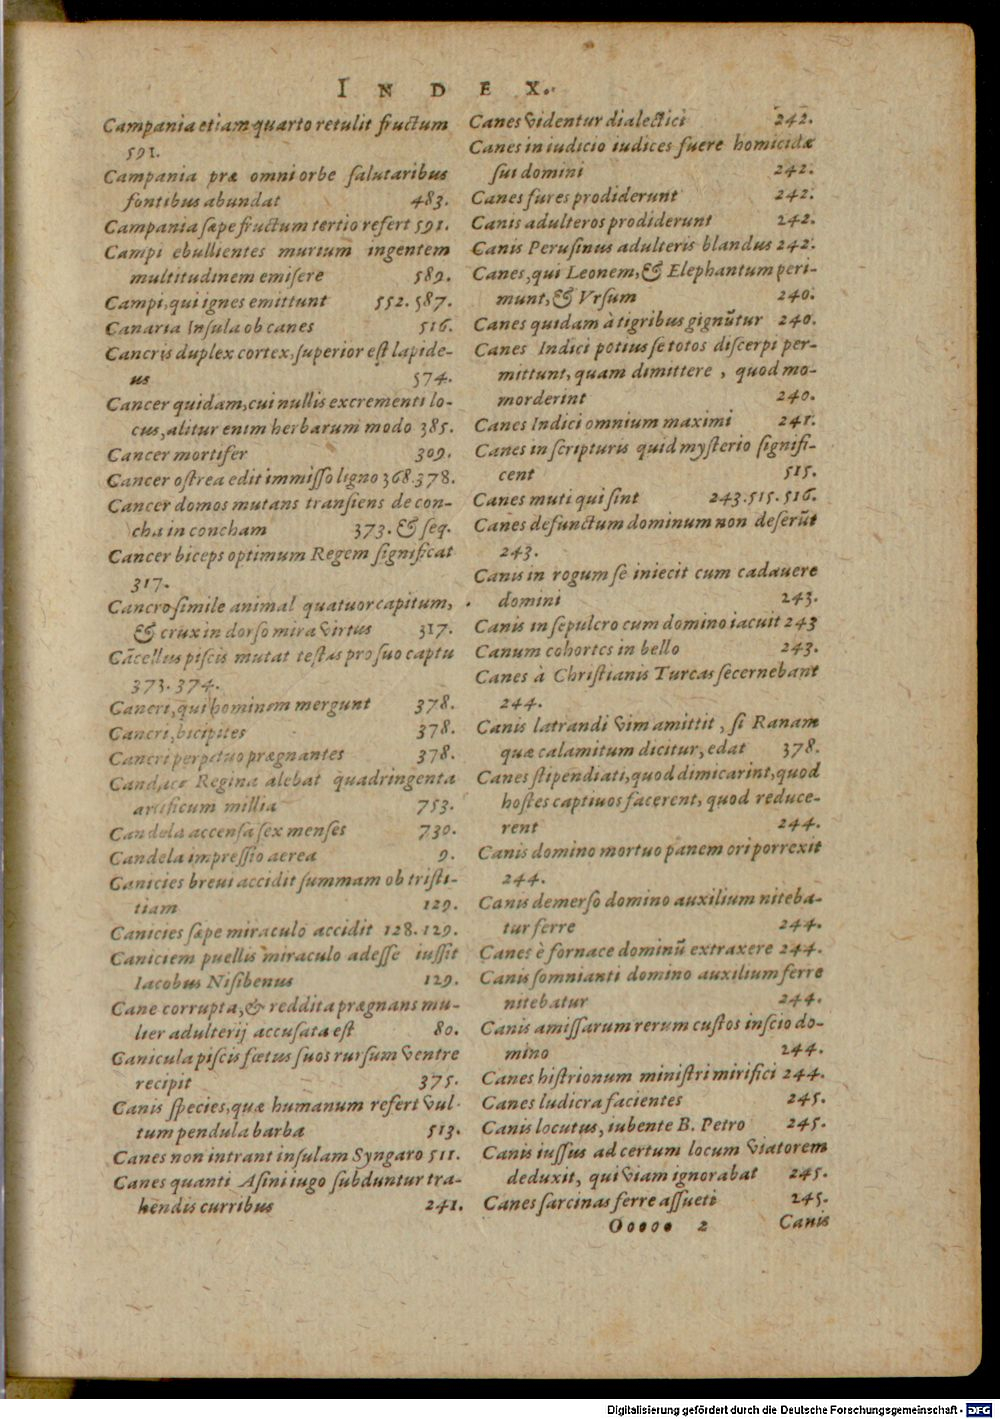 INDEX.
Campania etiam quarto retulit fructum
591.
Campania præ omni orbe salutaribus
fontibus abundat 483.
Campania sæpe fructum tertio refert 591.
Campi ebullientes murium ingentem
multitudinem emisere 589.
Campi, qui ignes emittunt 552. 587.
Canaria Insula ob canes 516.
Cancris duplex cortex, superior est lapide-
us 574.
Cancer quidam, cui nullis excrementi lo-
cus, alitur enim herbarum modo 385.
Cancer mortifer 309.
Cancer ostrea edit immisso ligno 368.378.
Cancer domos mutans transiens de con-
cha in concham 373. & seq.
Cancer biceps optimum Regem significat
317.
Cancro simile animal quatuor capitum,
& crux in dorso mira virtus 317.
Cãcellus piscis mutat testas pro suo captu
373. 374.
Cancri, qui hominem mergunt 378.
Cancri, bicipites 378.
Cancri perpetuo prægnantes 378.
Candace Regina alebat quadringenta
artificum millia 753.
Candela accensa sex menses 730.
Candela impressio aerea 9.
Canicies breui accidit summam ob tristi-
tiam 129.
Canicies sæpe miraculo accidit 128. 129.
Caniciem puellis miraculo adesse iussit
Iacobus Nisibenus 129.
Cane corrupta, & reddita prægnans mu-
lier adulterij accusata est 80.
Canicula piscis fœtus suos rursum ventre
recipit 375.
Canis species, quæ humanum refert vul-
tum pendula barba 513.
Canes non intrant insulam Syngaro 511.
Canes quanti Asini iugo subduntur tra-
hendis curribus 241.
Canes videntur dialectici 242.
Canes in iudicio iudices fuere homicidæ
sui domini 242.
Canes fures prodiderunt 242.
Canis adulteros prodiderunt 242.
Canis Perusinus adulteris blandus 242.
Canes, qui Leonem, & Elephantum peri-
munt, & Vrsum 240.
Canes quidam à tigribus gignũtur 240.
Canes Indici potius se totos discerpi per-
mittunt, quam dimittere, quod mo-
morderint 240.
Canes Indici omnium maximi 241.
Canes in scripturis quid mysterio signifi-
cent 515.
Canes muti qui sint 243. 515. 516.
Canes defunctum dominum non deserũt
243.
Canis in rogum se iniecit cum cadauere
domini 243.
Canis in sepulcro cum domino iacuit 243
Canum cohortes in bello 243.
Canes à Christianis Turcas secernebant
244.
Canis latrandi vim amittit, si Ranam
quæ calamitum dicitur, edat 378.
Canes stipendiati, quod dimicarint, quod
hostes captiuos facerent, quod reduce-
rent 244.
Canis domino mortuo panem ori porrexit
244.
Canis demerso domino auxilium niteba-
tur ferre 244.
Canes è fornace dominũ extraxere 244.
Canis somnianti domino auxilium ferre
nitebatur 244.
Canis amissarum rerum custos inscio do-
mino 244.
Canes histrionum ministri mirifici 244.
Canes ludicra facientes 245.
Canis locutus, iubente B. Petro 245.
Canis iussus ad certum locum viatorem
deduxit, qui viam ignorabat 245.
Canes sarcinas ferre assueti 245.
Ooooo 2 Canis
Digitalisierung gefördert durch die Deutsche Forschungsgemeinschaft - DFG